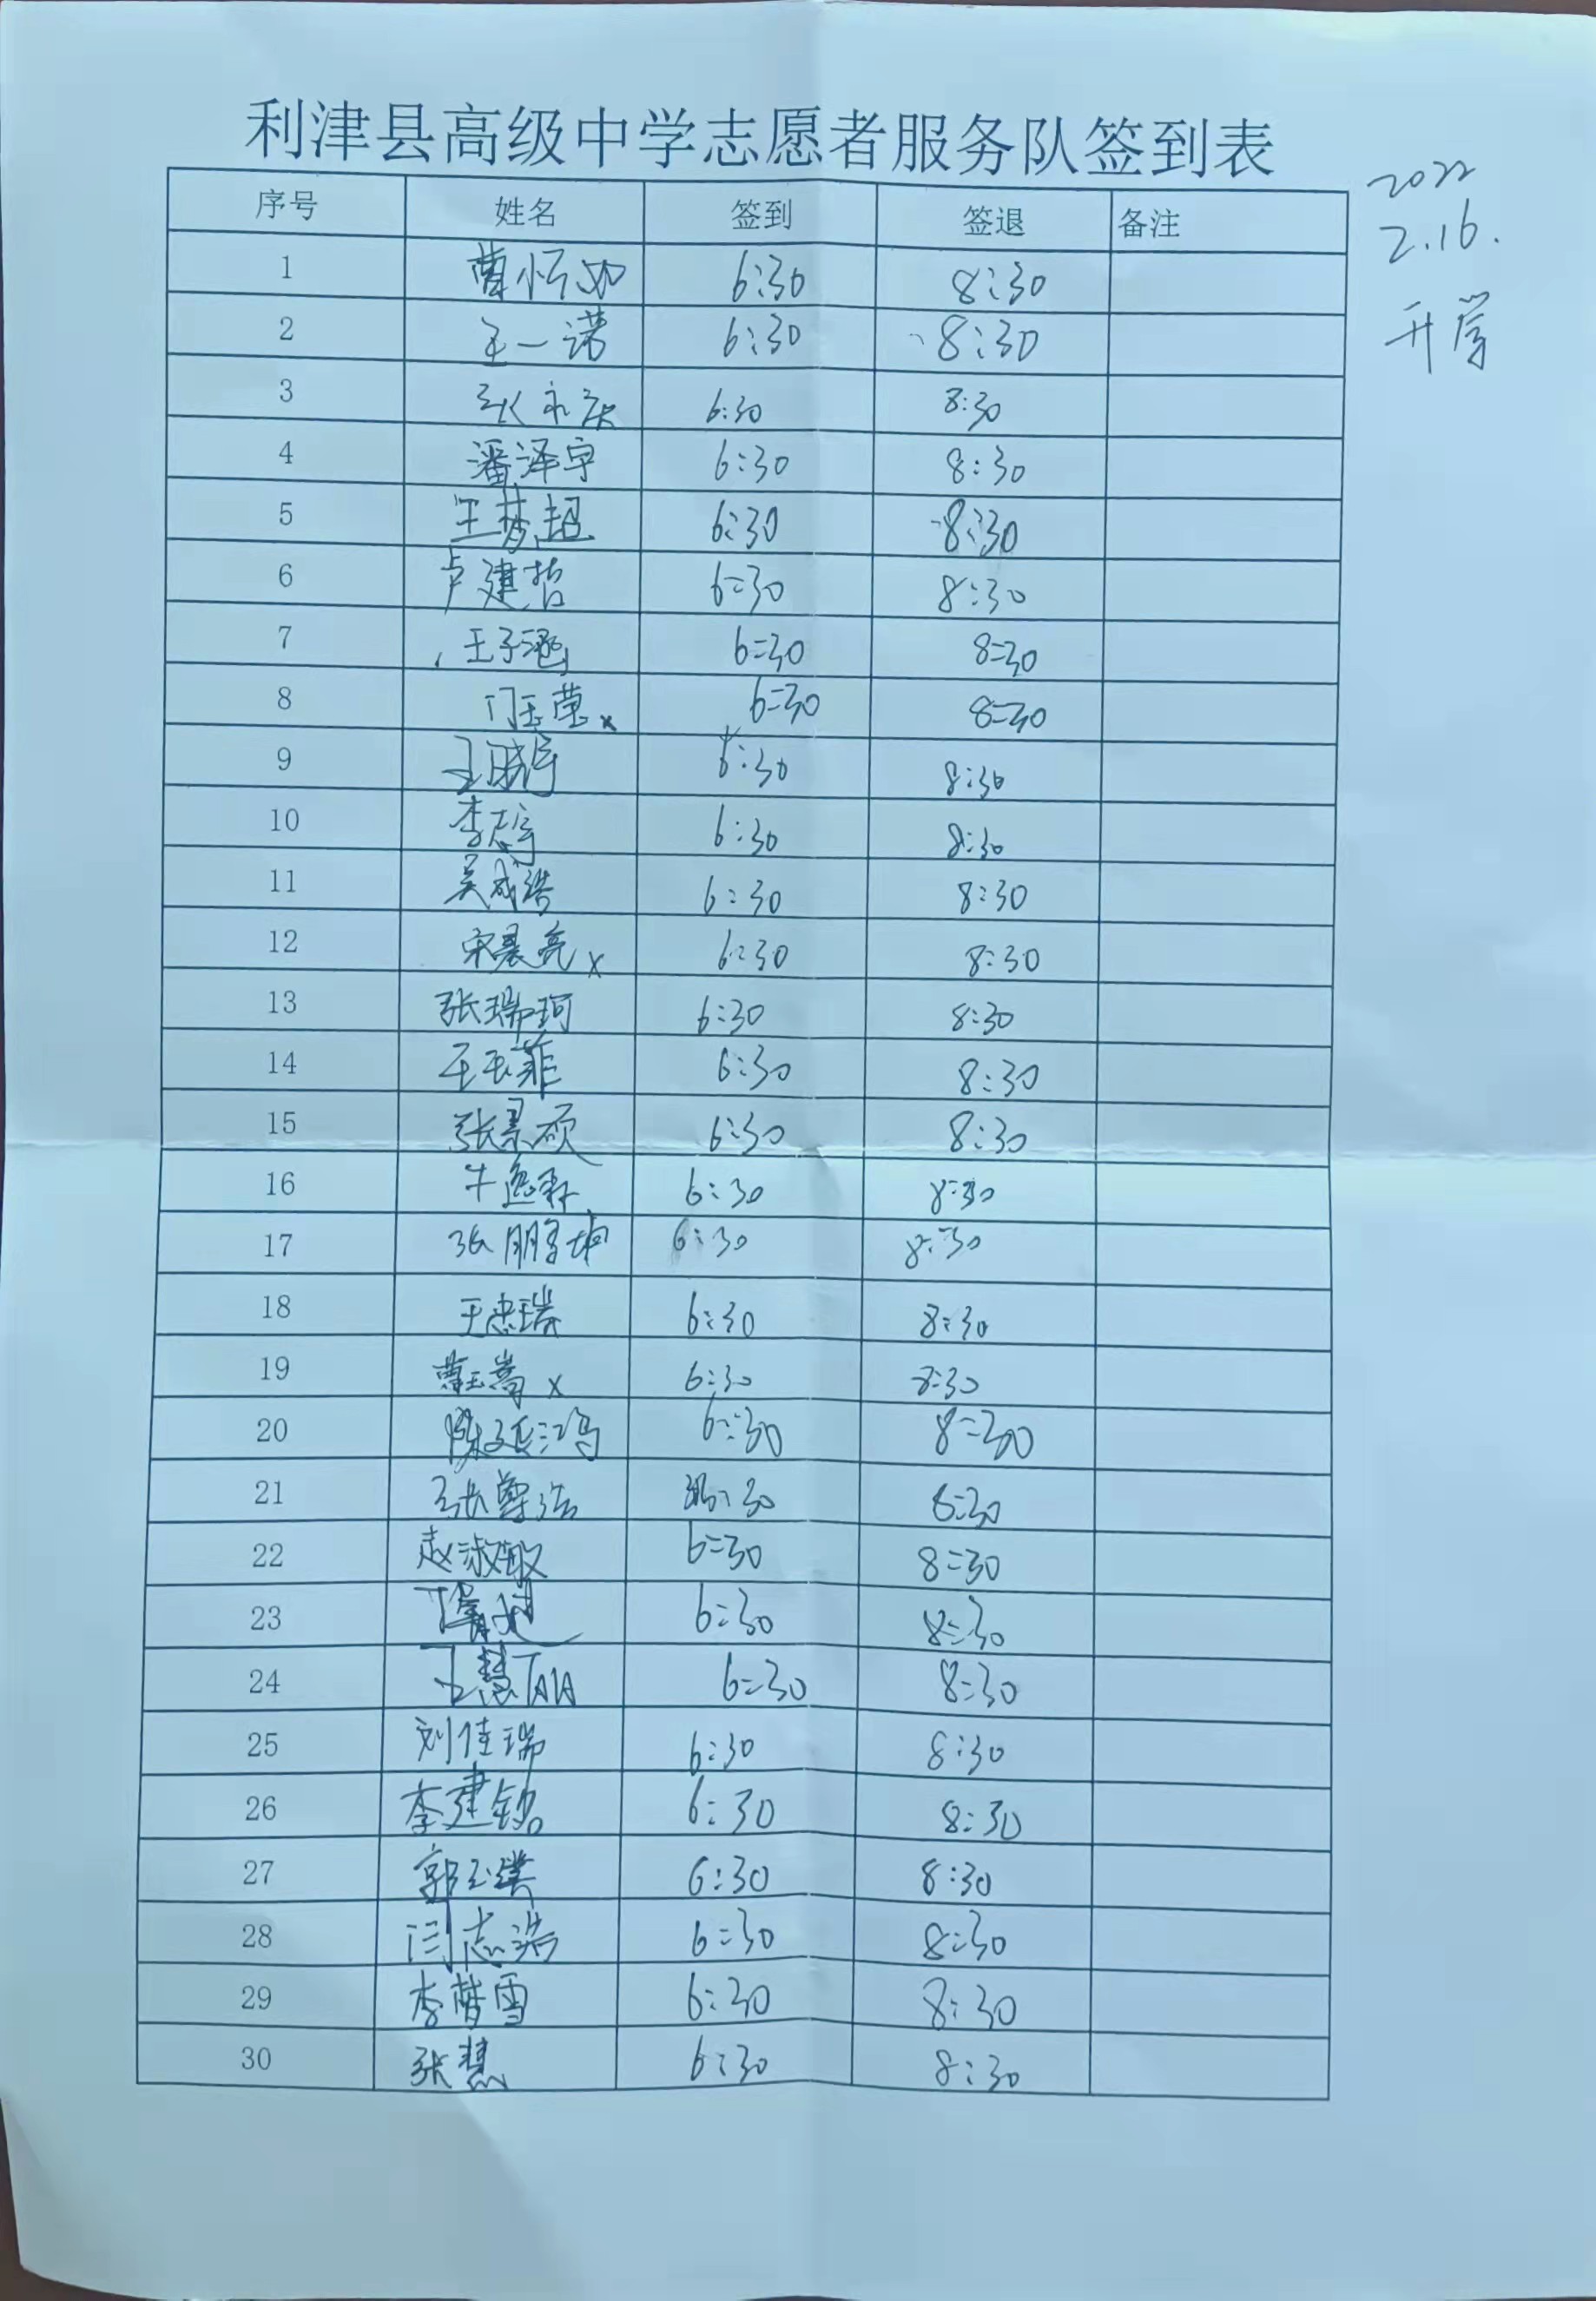 利津县高级中学志愿者服务队签到表
2022
2.16.
开学
序号 姓名 签到 签退 备注
1 曹怀 6:30 8:30
2 王一诺 6:30 8:30
3 张永庆 6:30 8:30
4 潘泽宇 6:30 8:30
5 王梦超 6:30 8:30
6 卢建哲 6:30 8:30
7 王子涵 6:30 8:30
8 门玉莹 x 6:30 8:30
9 王晓宇 6:30 8:30
10 李志宇 6:30 8:30
11 吴成浩 6:30 8:30
12 宋晨亮 x 6:30 8:30
13 张瑞珂 6:30 8:30
14 王玉菲 6:30 8:30
15 张景硕 6:30 8:30
16 牛逸群 6:30 8:30
17 张鹏坤 6:30 8:30
18 王忠瑞 6:30 8:30
19 曹玉嵩 x 6:30 8:30
20 陈延鸿 6:30 8:30
21 张尊浩 :30 8:30
22 赵淑敏 6:30 8:30
23 6:30 8:30
24 王慧 6:30 8:30
25 刘佳瑞 6:30 8:30
26 李建铭 6:30 8:30
27 郭玉璞 6:30 8:30
28 闫志浩 6:30 8:30
29 李梦雪 6:30 8:30
30 张慧 6:30 8:30